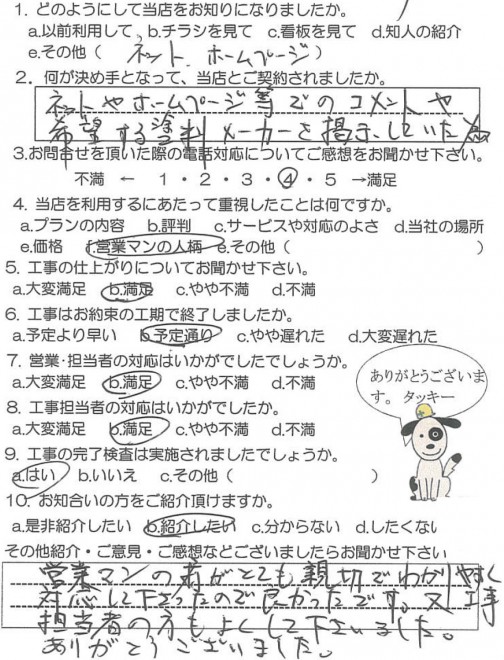 1. どのようにして当店をお知りになりましたか。
a.以前利用して、b.チラシを見て c.看板を見て d.知人の紹介
e.その他（ ネット、ホームページ ）
2．何が決め手となって、当店とご契約されましたか。
ネットやホームページ等でのコメントや
希望する塗料メーカーを掲示していた為
3.お問合せを頂いた際の電話対応についてご感想をお聞かせ下さい。
不満 ← 1・2・3・4・5 →満足
4. 当店を利用するにあたって重視したことは何ですか。
a.プランの内容 b.評判 c.サービスや対応のよさ d.当社の場所
e.価格 f.営業マンの人柄 g.その他（ ）
5. 工事の仕上がりについてお聞かせ下さい。
a.大変満足 b.満足 c.やや不満 d.不満
6. 工事はお約束の工期で終了しましたか。
a.予定より早い b.予定通り c.やや遅れた d.大変遅れた
7. 営業・担当者の対応はいかがでしたでしょうか。
a.大変満足 b.満足 c.やや不満 d.不満
8. 工事担当者の対応はいかがでしたか。
a.大変満足 b.満足 c.やや不満 d.不満
ありがとうございま
す。 タッキー
9. 工事の完了検査は実施されましたでしょうか。
a.はい b.いいえ c.その他（ ）
10. お知合いの方をご紹介頂けますか。
a.是非紹介したい b.紹介したい c.分からない d.したくない
その他紹介・ご意見・ご感想などございましたらお聞かせ下さい
営業マンの方がとても親切でわかりやすく
対応して下さったので良かったです。又、工事
担当者の方もよくして下さいました。
ありがとうございました。